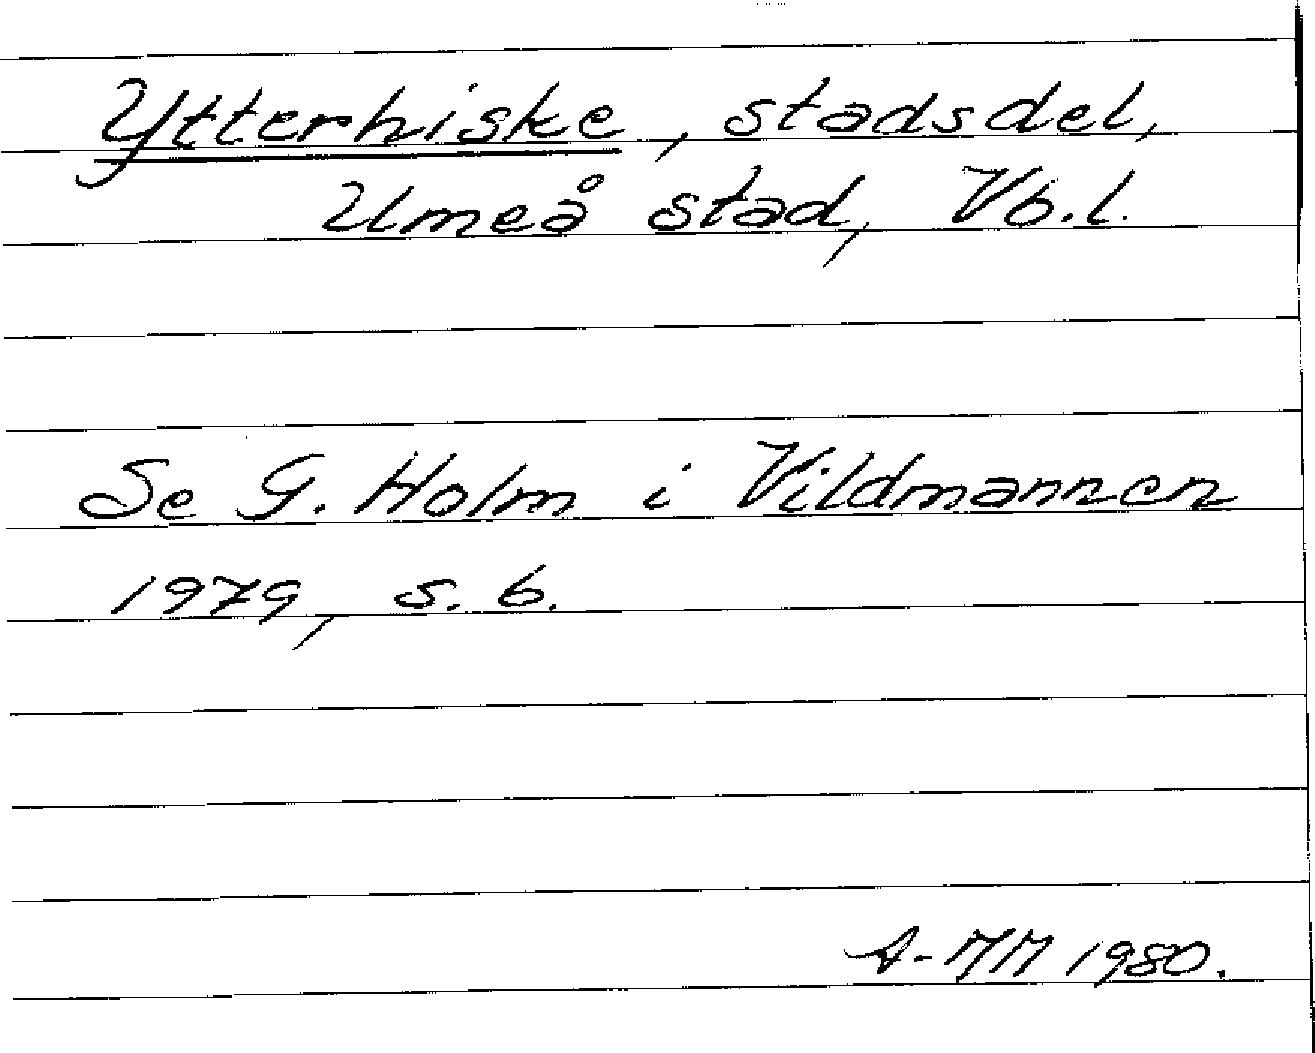 Ytterhiske, stadsdel,
Umeå stad, Vb.l.
Se G. Holm i Vildmannen
1979, s. 6.
A-MM 1980.